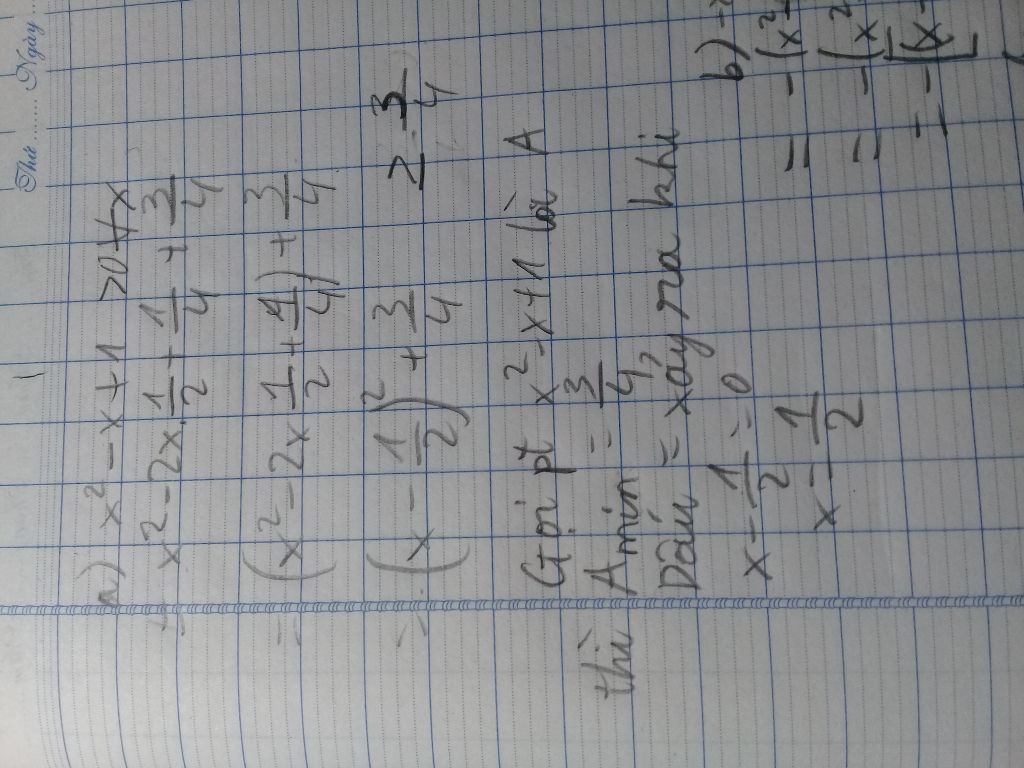 Thứ ........ Ngày
a) x² - x + 1 > 0 ∀x
= x² - 2x.1/2 + 1/4 + 3/4
= (x² - 2x 1/2 + 1/4) + 3/4
= (x - 1/2)² + 3/4 ≥ 3/4
Gọi pt x² - x + 1 là A
thì A min = 3/4,
Dấu = xảy ra khi
x - 1/2 = 0
x = 1/2
b) -
= - (x²
= - (x²
= - [(x -